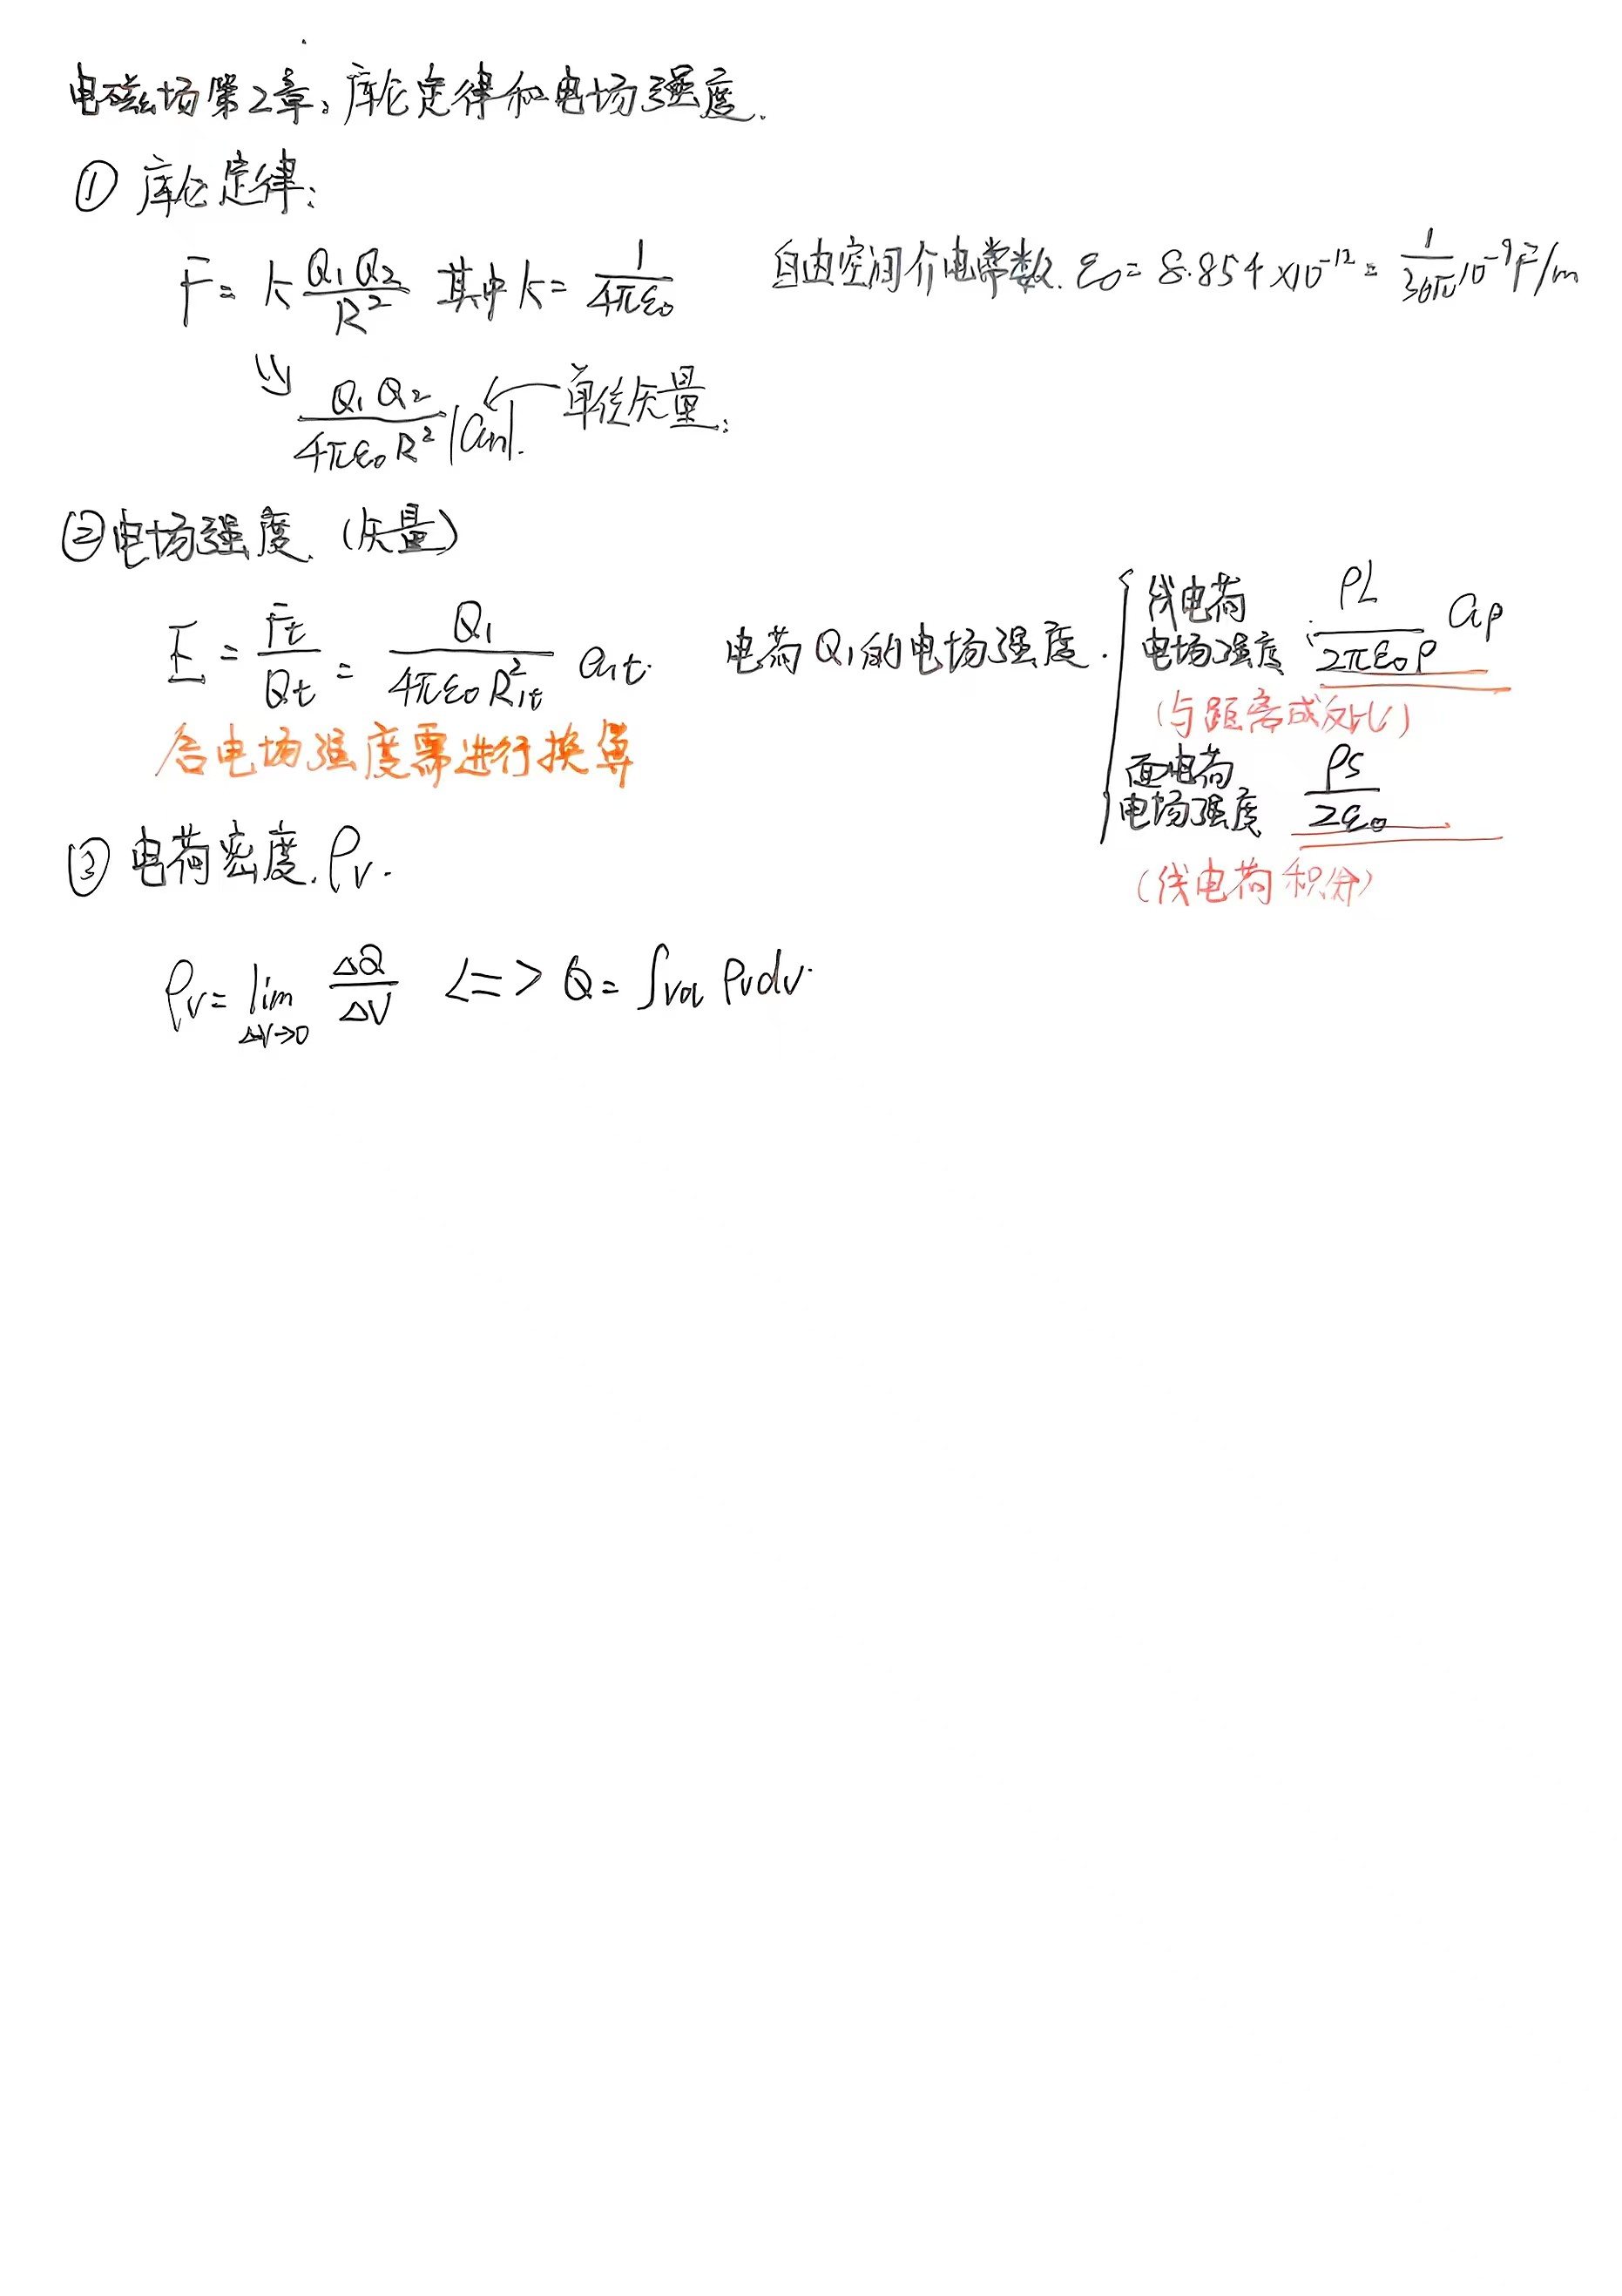 电磁场第2章：库仑定律和电场强度.
① 库仑定律：
F = k Q₁Q₂/R² 其中 k = 1/4πε₀ 自由空间介电常数. ε₀ = 8.854×10⁻¹² = 1/36π 10⁻⁹F/m
⇓ Q₁Q₂/4πε₀R² |an|. ← 单位矢量：
② 电场强度.（矢量）
E = Ft/Qt = Q₁/4πε₀R₁t² a₁t. 电荷Q₁的电场强度.
线电荷电场强度： ρL/2πε₀ρ aρ
（与距离成反比）
面电荷电场强度 ρs/2ε₀
（线电荷积分）
合电场强度需进行换算
③ 电荷密度. ρv.
ρv = lim ΔV→0 ΔQ/ΔV <=> Q = ∫vol ρv dv.